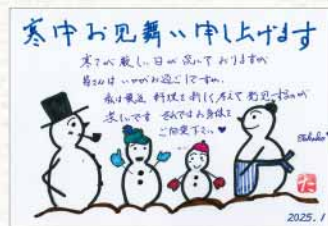 寒中お見舞い申し上げます
寒さが厳しい日が続いておりますが
皆さんはいかがお過ごしですか。
私は最近 料理を 新しく 考えて 発見するのが
楽しいです それではお身体を
ご自愛下さい♥
た
2025.1